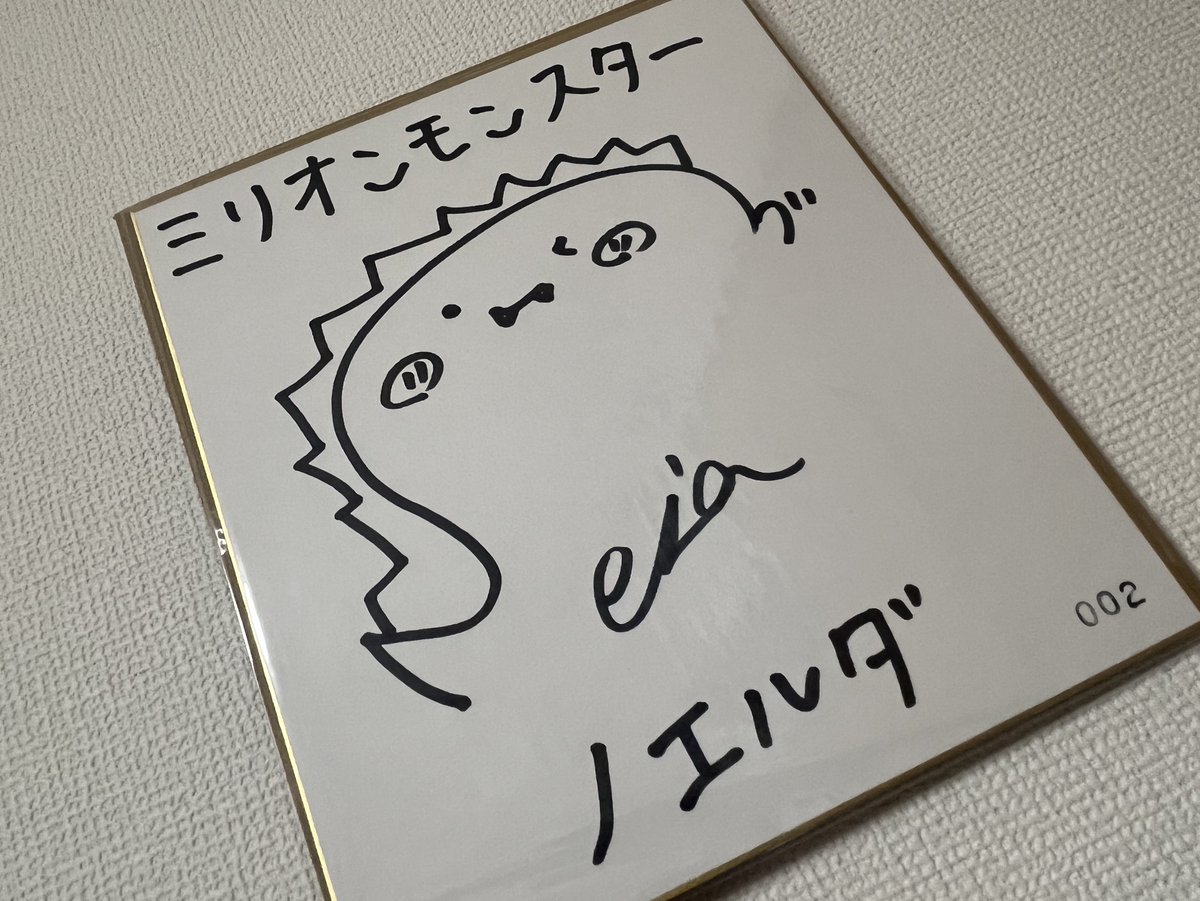 ミリオンモンスター
ノエルダ
002